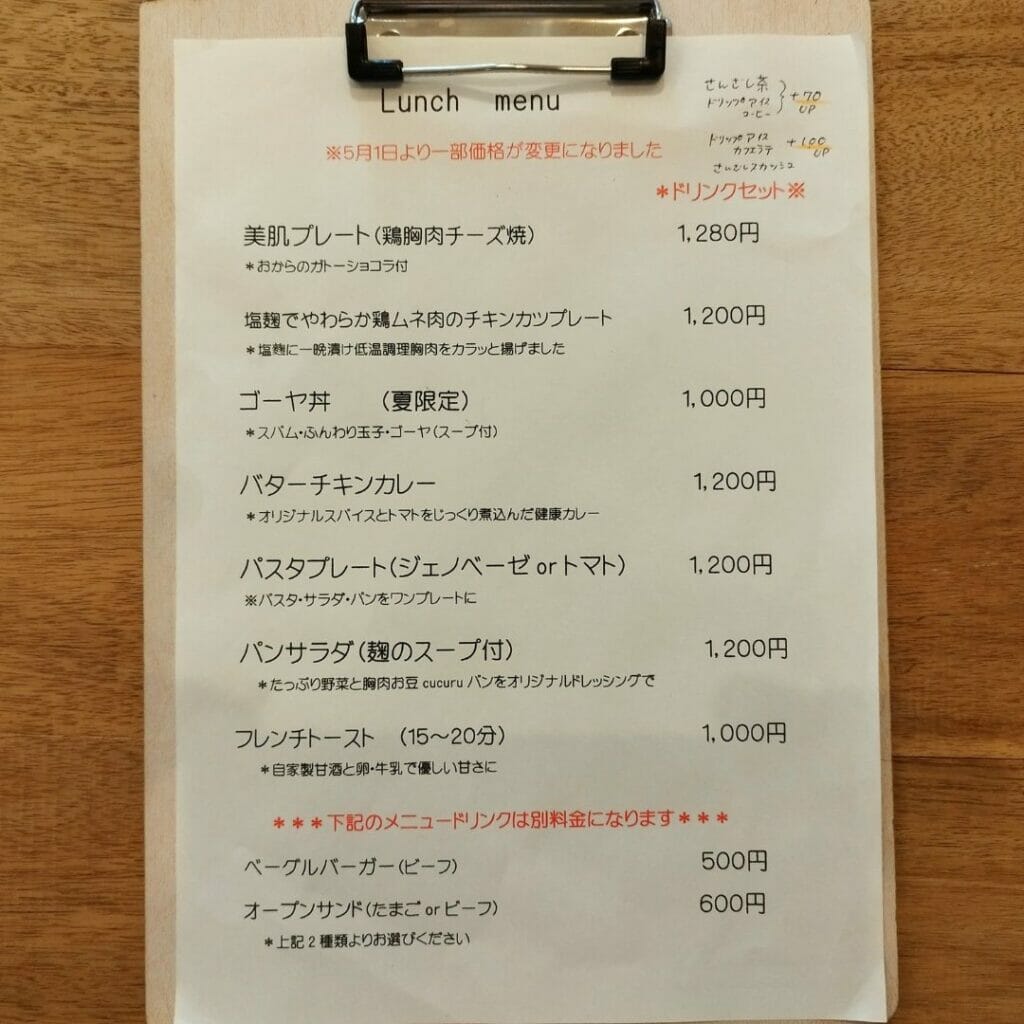 Lunch menu
さんざし茶
ドリップアイスコーヒー
+70
UP
ドリップアイス
カフェラテ
+100
UP
さんざしスカッシュ
※5月1日より一部価格が変更になりました
＊ドリンクセット※
美肌プレート(鶏胸肉チーズ焼) 1,280円
＊おからのガトーショコラ付
塩麹でやわらか鶏ムネ肉のチキンカツプレート 1,200円
＊塩麹に一晩漬け低温調理胸肉をカラッと揚げました
ゴーヤ丼 (夏限定) 1,000円
＊スパム・ふんわり玉子・ゴーヤ(スープ付)
バターチキンカレー 1,200円
＊オリジナルスパイスとトマトをじっくり煮込んだ健康カレー
パスタプレート(ジェノベーゼ or トマト) 1,200円
※パスタ・サラダ・パンをワンプレートに
パンサラダ(麹のスープ付) 1,200円
＊たっぷり野菜と胸肉お豆 cucuru パンをオリジナルドレッシングで
フレンチトースト (15～20分) 1,000円
＊自家製甘酒と卵・牛乳で優しい甘さに
＊＊＊下記のメニュードリンクは別料金になります＊＊＊
ベーグルバーガー(ビーフ) 500円
オープンサンド(たまご or ビーフ) 600円
＊上記2種類よりお選びください